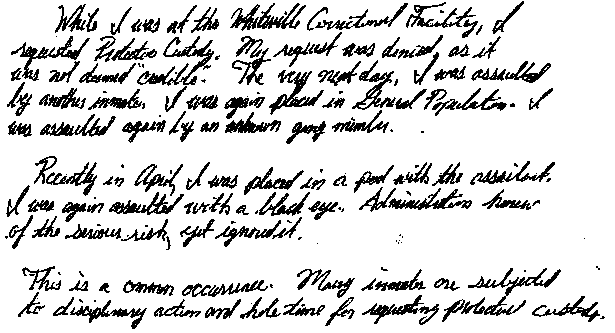 While I was at the Whiteville Correctional Facility, I
requested Protective Custody. My request was denied, as it
was not deemed "credible". The very next day, I was assaulted
by another inmate. I was again placed in General Population. I
was assaulted again by an unknown gang member.
Recently in April, I was placed in a pod with the assailant.
I was again assaulted with a black eye. Administration knew
of the serious risk, yet ignored it.
This is a common occurrence. Many inmates are subjected
to disciplinary action and hole time for requesting protective custody.